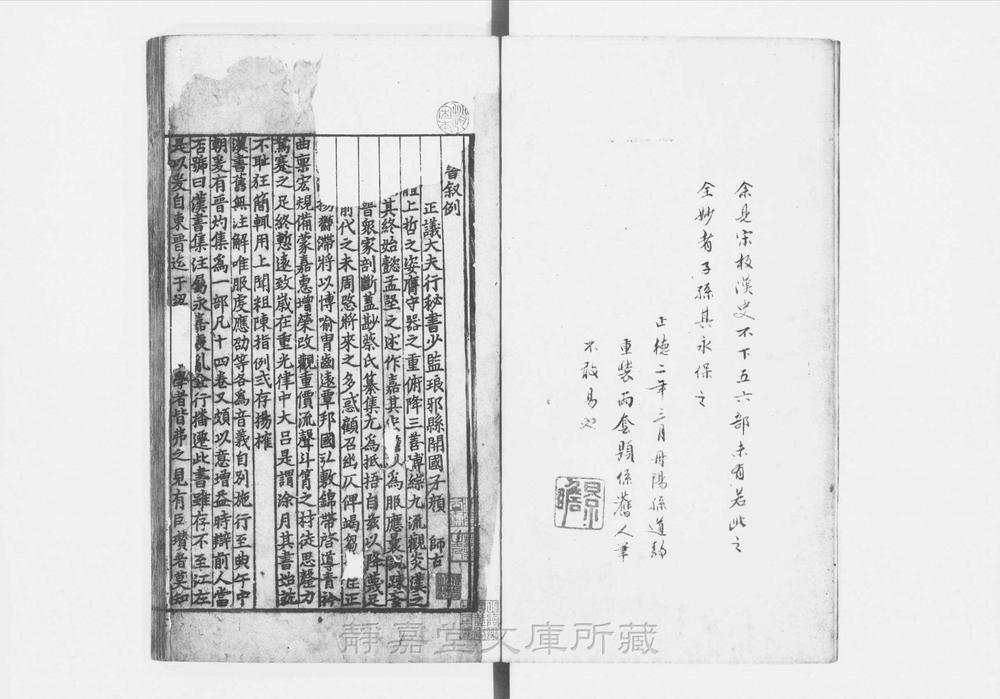 余見宋板漢史不下五六部未有若此之
全妙者子孫其永保之
正德二年三月丹陽孫道靜
重裝兩套題係舊人筆
不敢易也
叙例
正議大夫行秘書少監琅邪縣開國子顏 師古
上哲之姿膺守器之重俯降三善博綜九流觀炎漢之
其終始懿孟堅之述作嘉其 為服應曩說疎
晉眾家剖斷蓋尠蔡氏纂集尤為抵捂自茲以降蔑足
前代之未周愍將來之多惑顧召幽仄俾竭芻 正
鬱滯將以博喻胄齒遠覃邦國弘敷錦帶啓導青衿
曲稟宏規備蒙嘉惠增榮改觀重價流聲斗筲之材徒思罄力
駑蹇之足終慙遠致歲在重光律中大呂是謂涂月其書始就
不恥狂簡輒用上聞粗陳指例式存揚搉
漢書舊無注解唯服虔應劭等各為音義自別施行至典午中
朝爰有晉灼集為一部凡十四卷又頗以意增益時辯前人當
否號曰漢書集注屬永嘉喪亂金行播遷此書雖存不至江左
是以爰自東晉迄于 學者皆弗之見有臣瓚者莫知
靜嘉堂文庫所藏